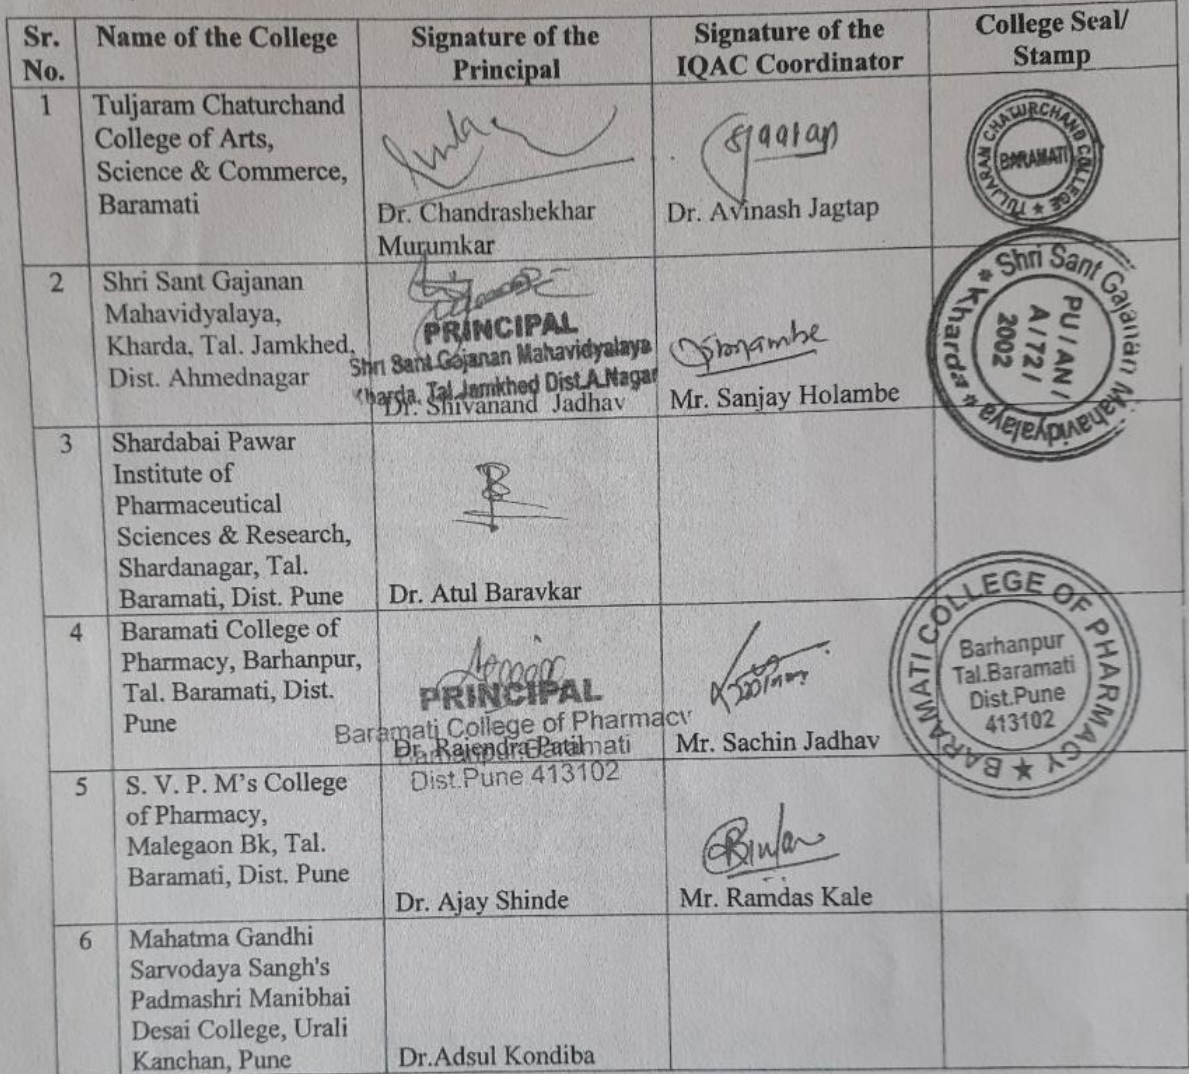 Sr. No. Name of the College Signature of the Principal Signature of the IQAC Coordinator College Seal/ Stamp
1
Tuljaram Chaturchand
College of Arts,
Science & Commerce,
Baramati
Dr. Chandrashekhar
Murumkar
Dr. Avinash Jagtap
TULJARAM CHATURCHAND COLLEGE
BARAMATI
2
Shri Sant Gajanan
Mahavidyalaya,
Kharda, Tal. Jamkhed,
Dist. Ahmednagar
PRINCIPAL
Shri Sant Gajanan Mahavidyalaya
Kharda, Tal.Jamkhed Dist.A.Nagar
Dr. Shivanand Jadhav
Mr. Sanjay Holambe
Shri Sant Gajanan Mahavidyalaya * Kharda *
PU / AN /
A / 72 /
2002
3
Shardabai Pawar
Institute of
Pharmaceutical
Sciences & Research,
Shardanagar, Tal.
Baramati, Dist. Pune
Dr. Atul Baravkar
4
Baramati College of
Pharmacy, Barhanpur,
Tal. Baramati, Dist.
Pune
PRINCIPAL
Baramati College of Pharmacy
Dr. Rajendra Patil
Dist.Pune 413102
Mr. Sachin Jadhav
BARAMATI COLLEGE OF PHARMACY ★
Barhanpur
Tal.Baramati
Dist.Pune
413102
5
S. V. P. M's College
of Pharmacy,
Malegaon Bk, Tal.
Baramati, Dist. Pune
Dr. Ajay Shinde
Mr. Ramdas Kale
6
Mahatma Gandhi
Sarvodaya Sangh's
Padmashri Manibhai
Desai College, Urali
Kanchan, Pune
Dr.Adsul Kondiba